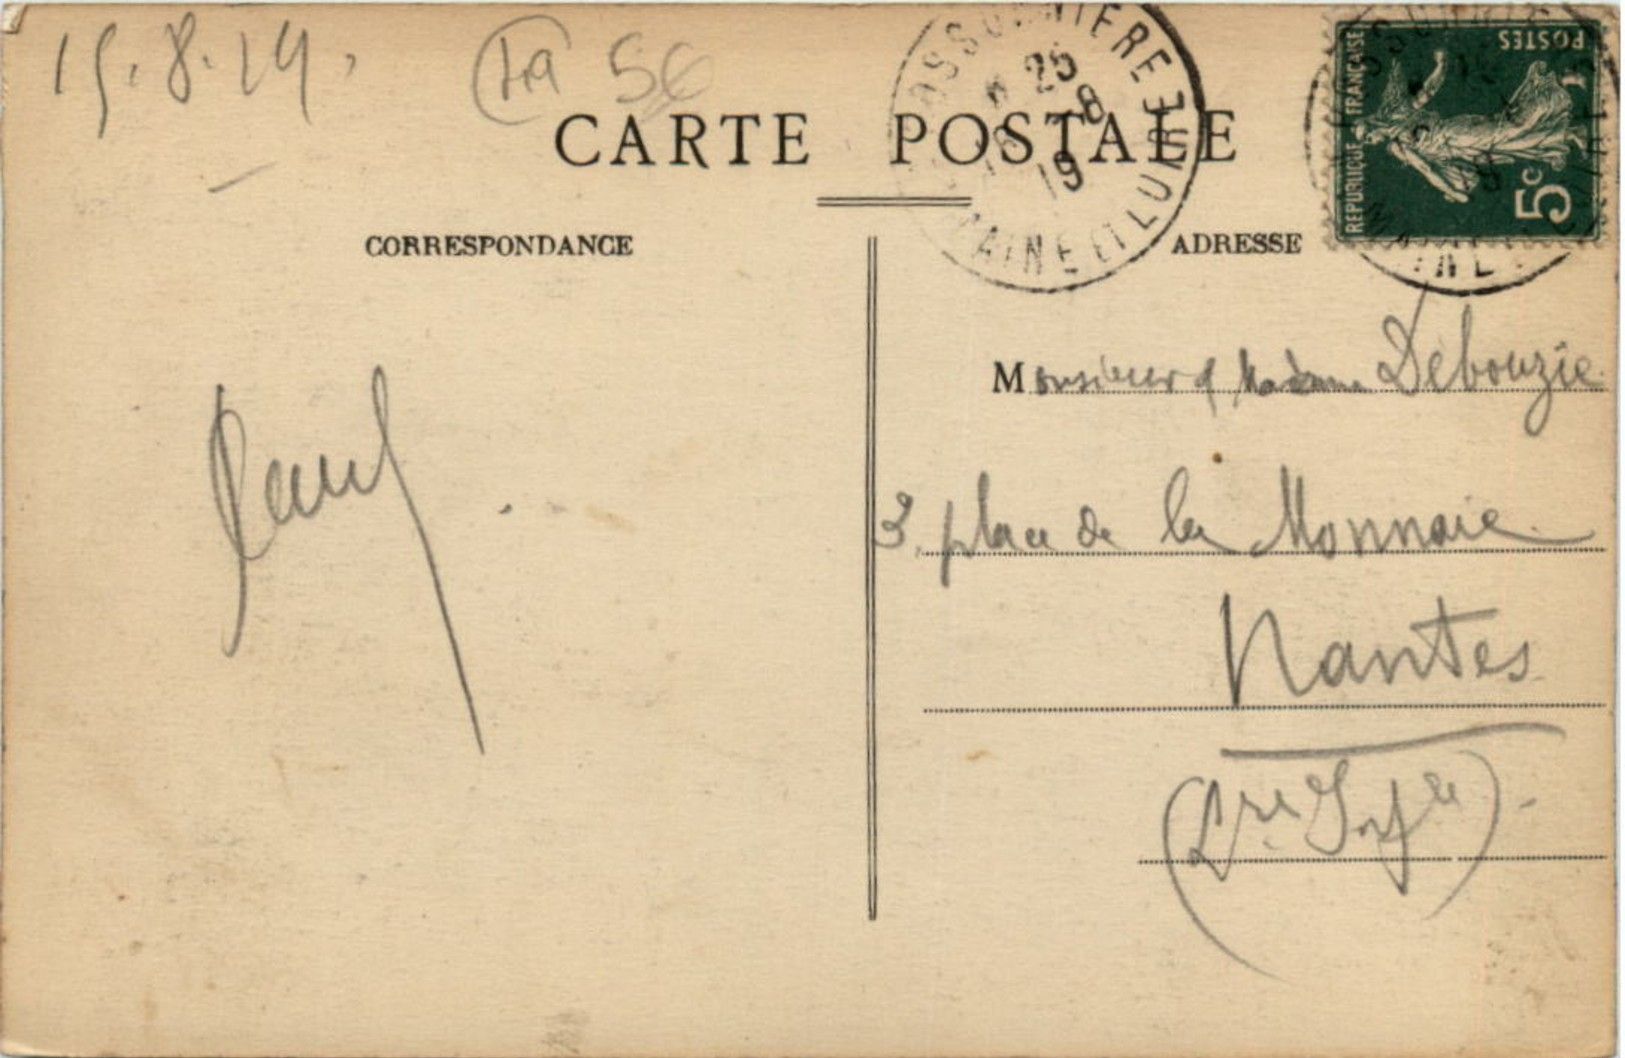 15.8.19.
CARTE POSTALE
CORRESPONDANCE
ADRESSE
POSSONNIÈRE
25
8
19
MAINE ET LOIRE
REPUBLIQUE FRANÇAISE
POSTES
5c
Paul.
Monsieur & Madame Debouzie
3, place de la Monnaie
Nantes
(Lre Infre).